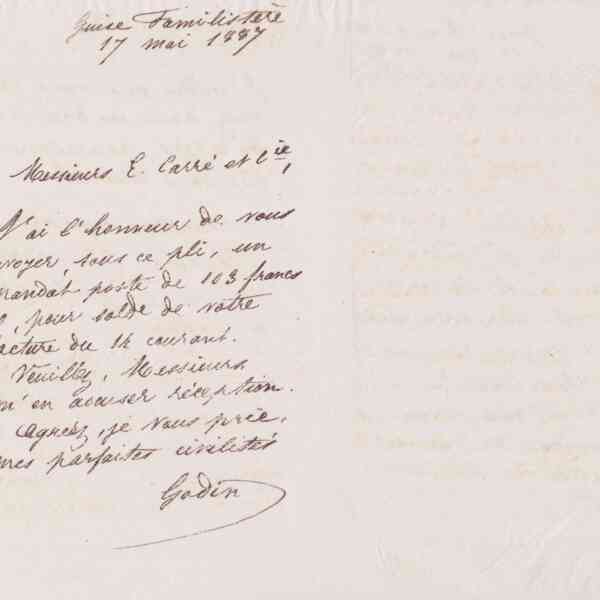 Guise Familistère
17 mai 1887
Messieurs E. Carré et Cie,
J'ai l'honneur de vous
nvoyer, sous ce pli, un
mandat poste de 103 francs
, pour solde de votre
facture du 14 courant.
Veuillez, Messieurs
m'en accuser réception.
Agréez, je vous prie,
mes parfaites civilités
Godin